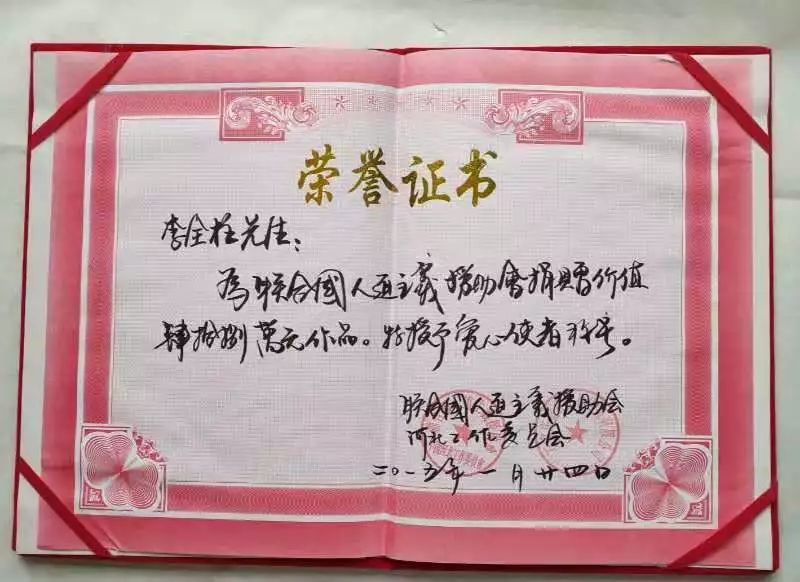 荣誉证书
李全柱先生：
為联合國人道主義援助會捐赠价值
肆拾捌萬元作品。特授予爱心使者称号。
联合國人道主義援助会
河北工作委员会
二〇一五年一月廿四日